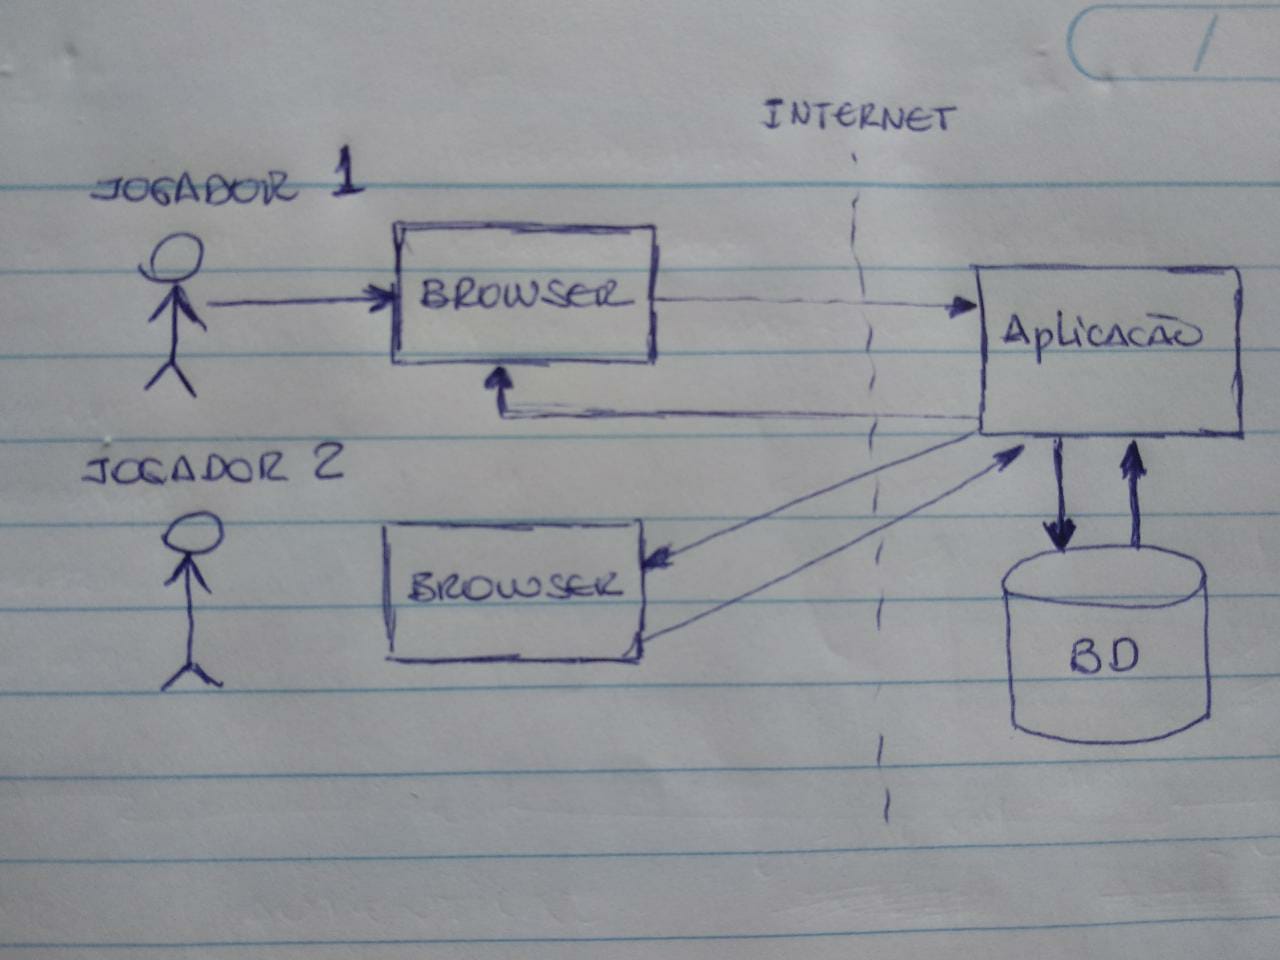 INTERNET
JOGADOR 1
BROWSER
Aplicacão
JOGADOR 2
BROWSER
BD